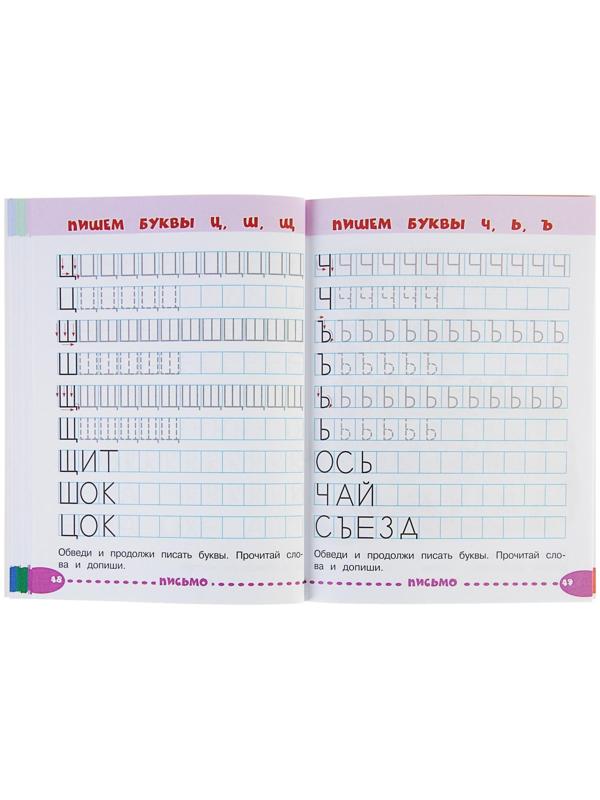 ПИШЕМ БУКВЫ Ц, Ш, Щ
Ц Ц Ц Ц Ц Ц Ц Ц Ц Ц Ц Ц
Ц Ц Ц Ц Ц Ц
Ш Ш Ш Ш Ш Ш Ш Ш Ш Ш Ш Ш
Ш Ш Ш Ш Ш Ш
Щ Щ Щ Щ Щ Щ Щ Щ Щ Щ Щ Щ
Щ Щ Щ Щ Щ Щ
ЩИТ
ШОК
ЦОК
Обведи и продолжи писать буквы. Прочитай сло-
ва и допиши.
48
ПИСЬМО
ПИШЕМ БУКВЫ Ч, Ь, Ъ
Ч Ч Ч Ч Ч Ч Ч Ч Ч Ч Ч Ч
Ч Ч Ч Ч Ч Ч
Ъ Ъ Ъ Ъ Ъ Ъ Ъ Ъ Ъ Ъ Ъ Ъ
Ъ Ъ Ъ Ъ Ъ Ъ
Ь Ь Ь Ь Ь Ь Ь Ь Ь Ь Ь Ь
Ь Ь Ь Ь Ь Ь
ОСЬ
ЧАЙ
СЪЕЗД
Обведи и продолжи писать буквы. Прочитай сло-
ва и допиши.
ПИСЬМО
49